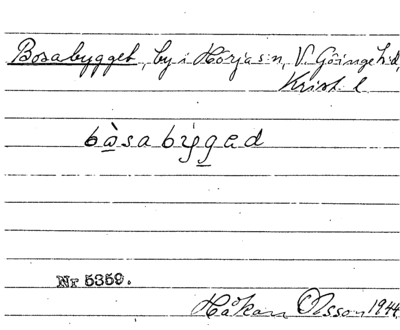 Bosabygget, by i Hörja s:n, V. Göinge h:d,
Krist. l
bò̲sabýg̲ed
Nr 5359.
Håkan Olsson 1944